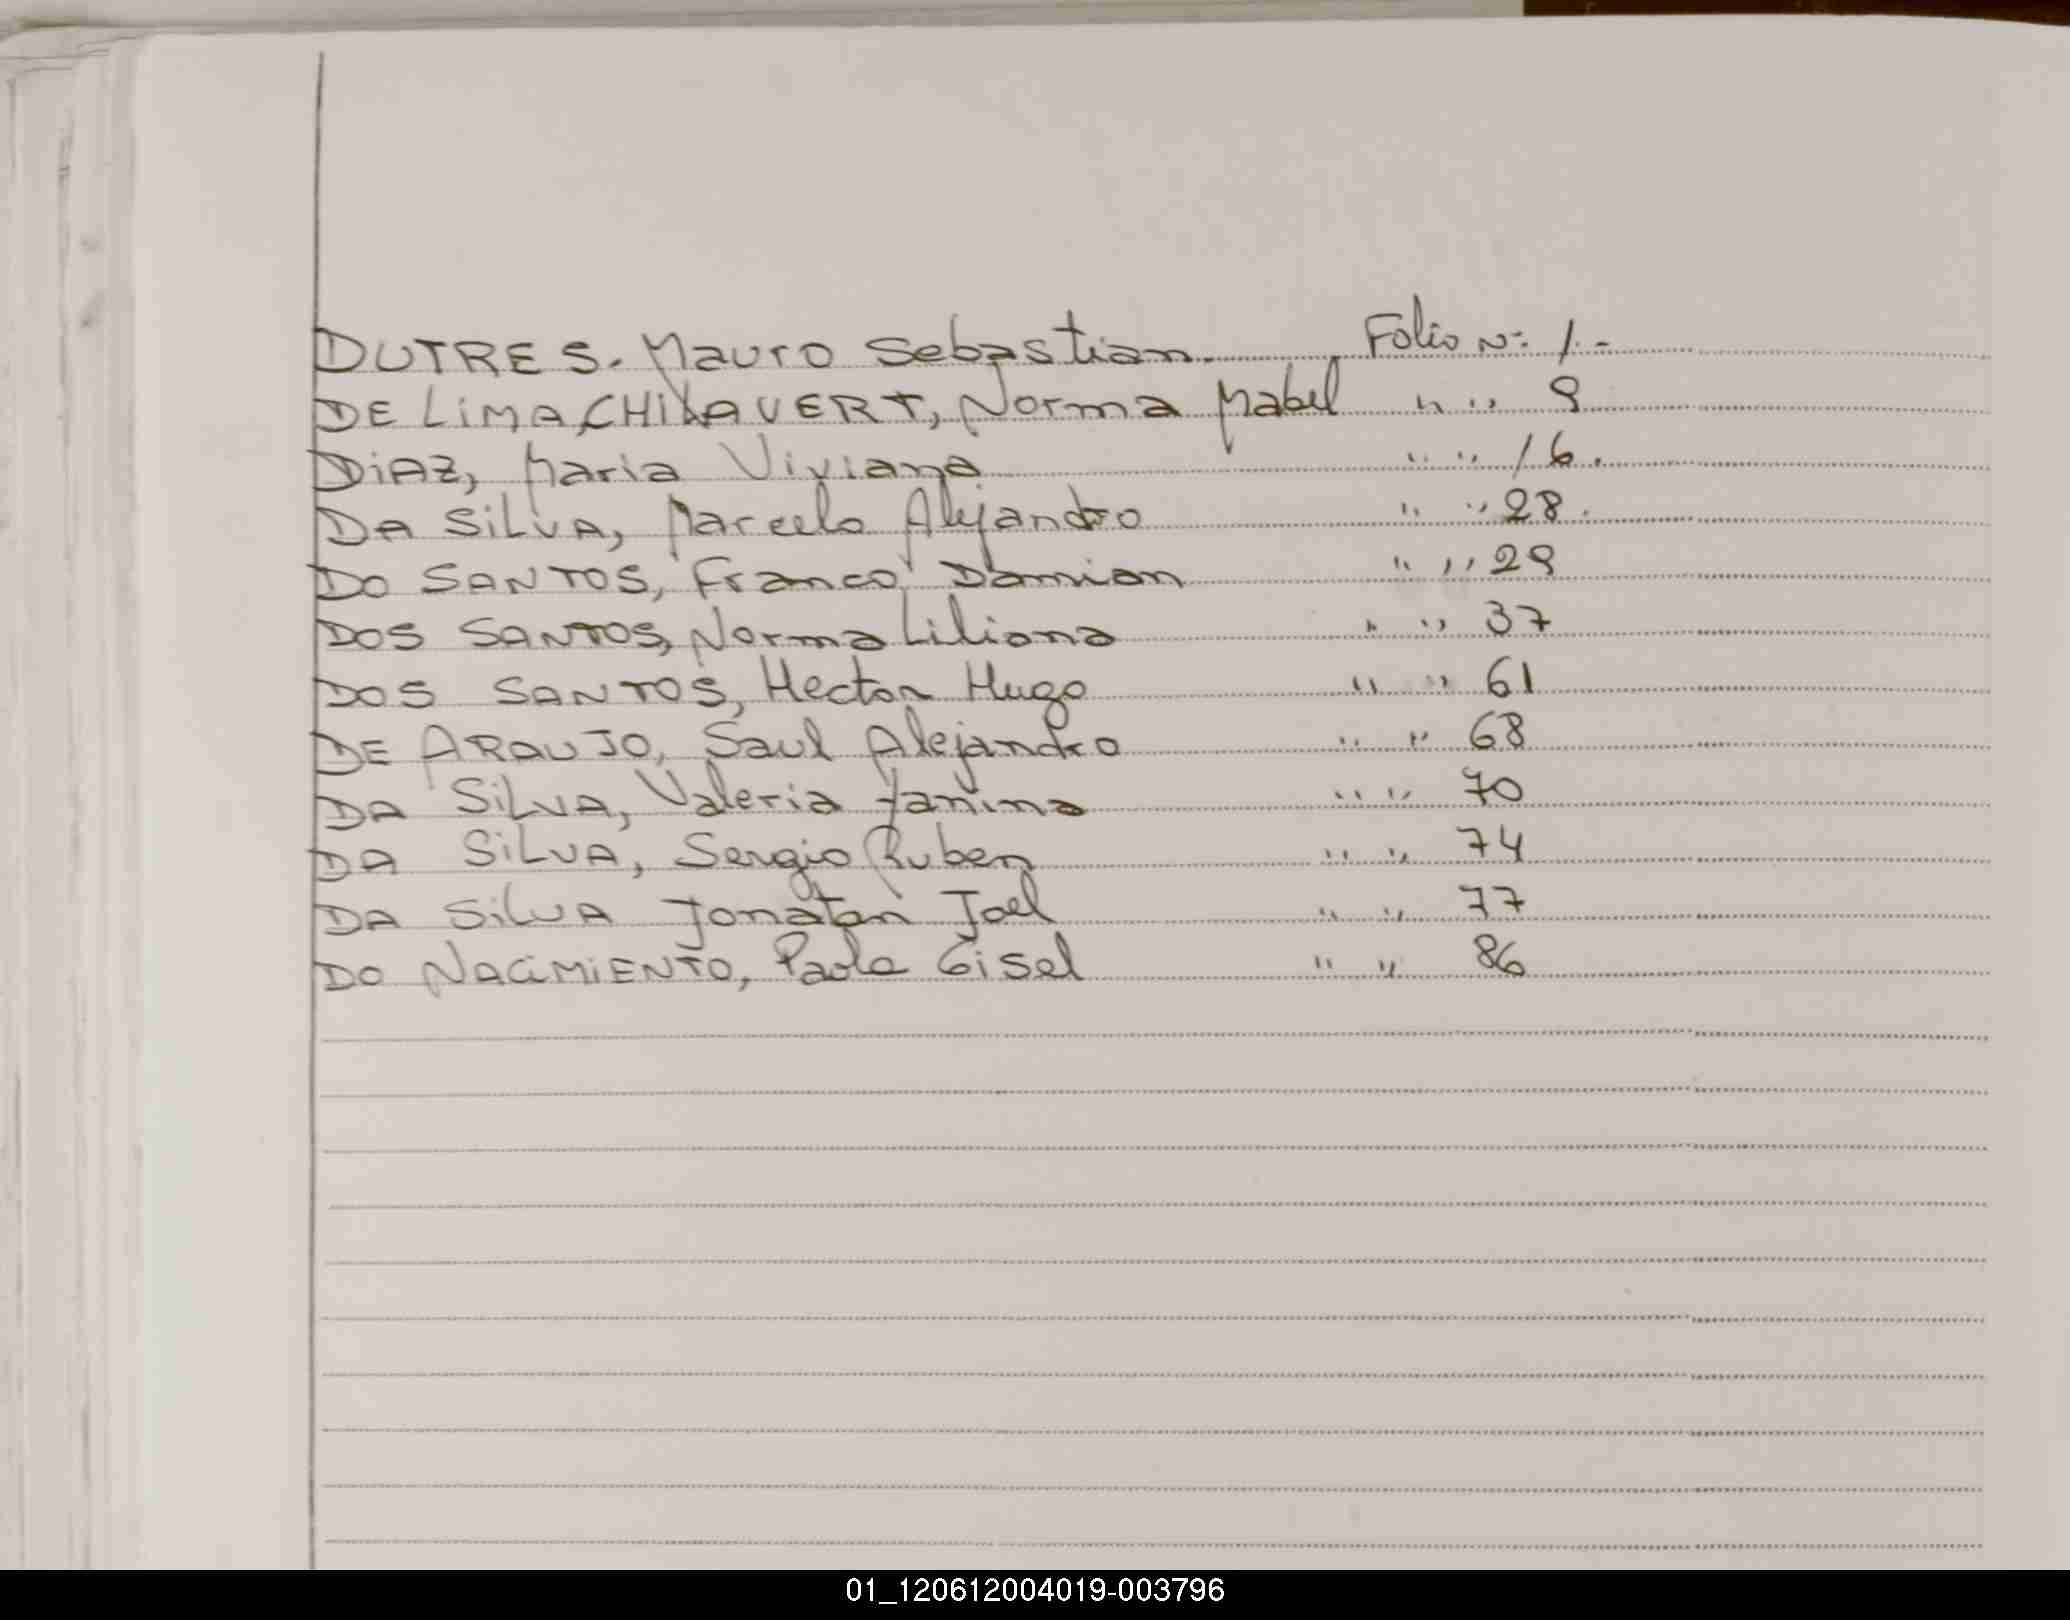 DUTRES. Mauro Sebastian. Folio Nº: 1.-
DE LiMA, CHILAVERT, Norma Mabel " " 9
DiAZ, Maria Viviana " " 16.
DA SiLVA, Marcelo Alejandro " " 28.
DO SANTOS, Franco Damian " " 29
DOS SANTOS, Norma Liliana " " 37
DOS SANTOS, Hector Hugo " " 61
DE ARAUJO, Saul Alejandro " " 68
DA SiLVA, Valeria Yanina " " 70
DA SiLVA, Sergio Ruben " " 74
DA SiLVA Jonatan Joel " " 77
DO NACiMiENTO, Paola Gisel " " 86
01_120612004019-003796